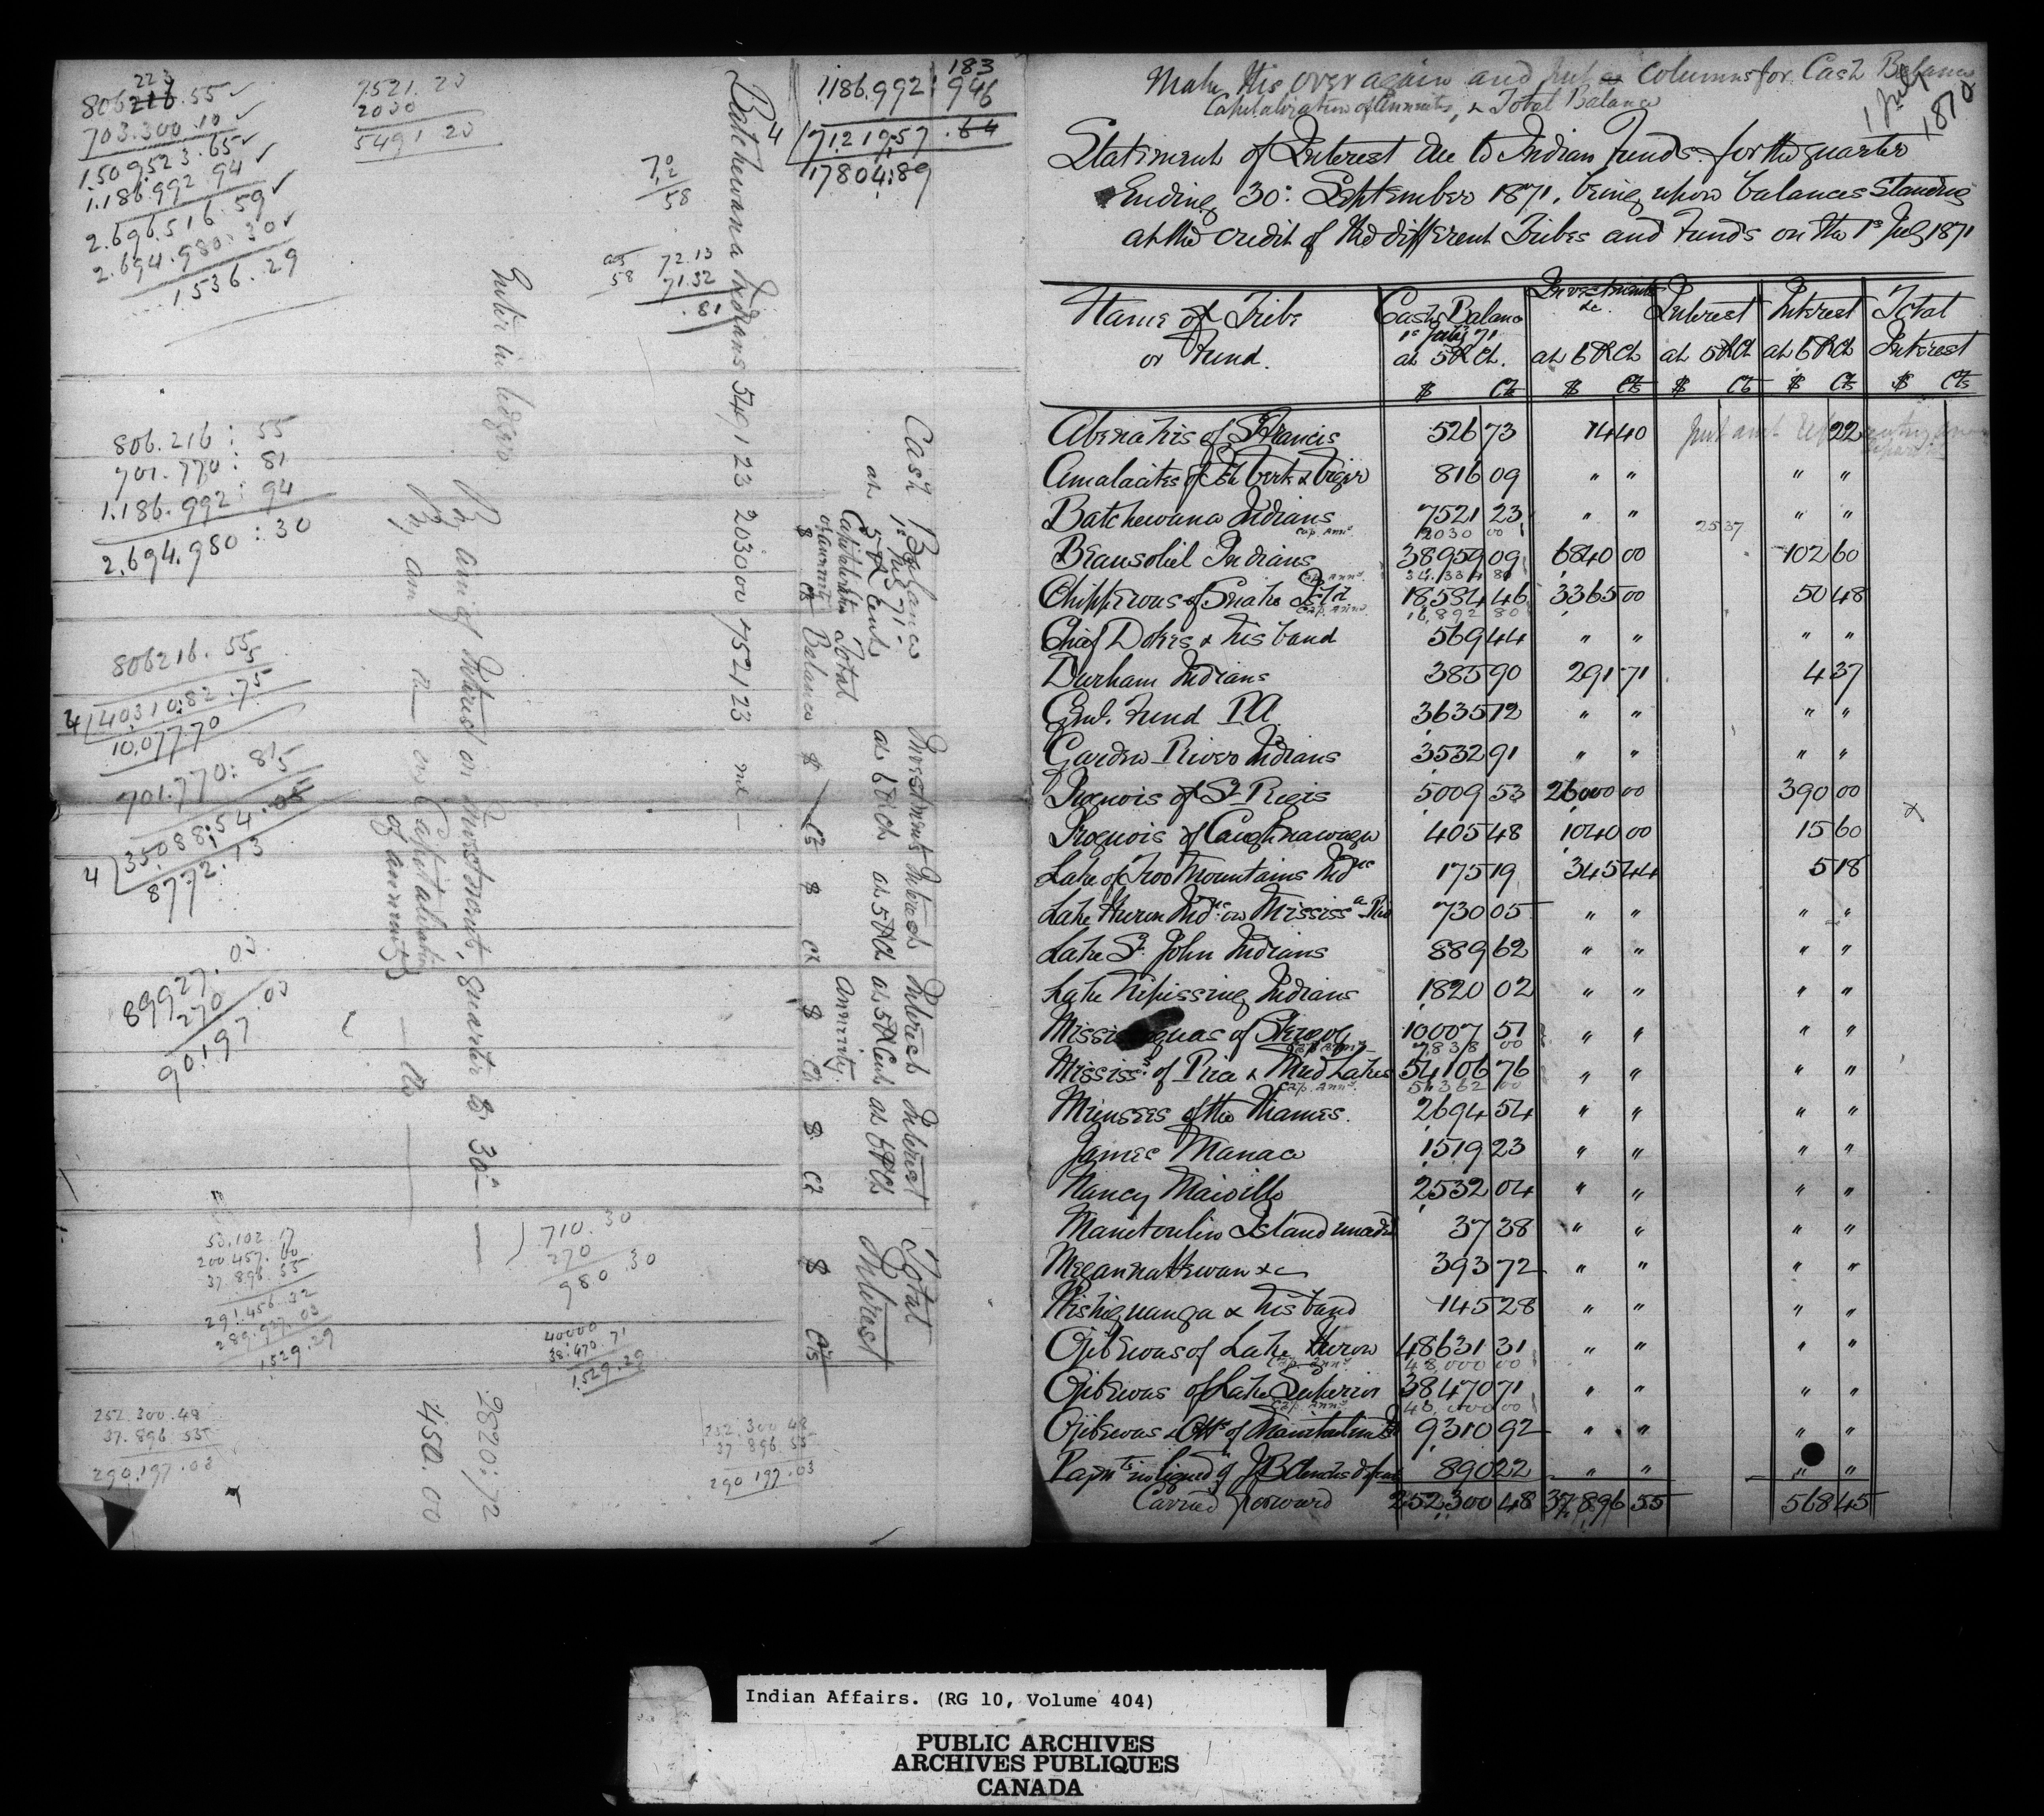 223
806 216.55 ✓
703.300.10 ✓
1.509523.65 ✓
1.186.992 94 ✓
2.696.516.59 ✓
2.694.980:30 ✓
1536.29
7521.23
2030
5491 23
72.13
71.32
.81
58
Enter in ledger
806.216:55
701.770:81
1.186.992:94
2.694.980:30
806216.55
4/40310:82.75
10.077.70
701.770:81
4/35088:54.05
8772.13
89927.03
270
90.197.03
53.102.17
200 457.60
37.896.55
291.456.32
289.927.03
1529.29
710.30
270
980.30
40000
38.470.71
1.529.29
252.300.48
37.896.55
290,197.03
252.300 48
37 896.55
290 197.03
By am: of Interest on Investment, quarter to 30th — 2820:72
By am — on Capitalization of annuity — 450.00
183
1.186.992:946
4/71.219:57.64
17804:89
Batchewana Indians 5491 23 2030 00 7521 23 nil —
Cash Balance
1st July 71.
at 5 P Cent
Capitalization of annuity
Total Balance
Investments at 6 P Ct
Interest at 5 P Ct
Interest at 5 P Cent Annuity
Interest at 6 P Ct
Total Interest
$ Cts
Make this over again and put columns for Cash Balance
Capitalization of Annuities, & Total Balance
1 July 1870
Statement of Interest due to Indian Funds for the quarter
Ending 30: September 1871, being upon balances standing
at the credit of the different Tribes and Funds on the 1st July 1871
Name of Tribe or Fund.
Cash Balance 1st July 71 at 5 P Ct.
Investments &c. at 6 P Ct
Interest at 5 P Ct
Interest at 6 P Ct
Total Interest
$ Cts $ Cts $ Cts $ Cts $ Cts
Abenakis of St Francis 526 73 14 40 22
Amalacites of Isle Verte & Viger 816 09 " " " "
Batchewana Indians 7521 23 " " 25 37 " "
Cap. Anny 2030 00
Beausoliel Indians 38959 09 6840 00 102 60
Cap. Anny. 34.334 80
Chippewas of Snake Isld 18.584 46 3365 00 50 48
Cap. Anny 16,892 80
Chief Dokis & his band 569 44 " " " "
Durham Indians 385 90 291 71 4 37
Genl. Fund I A. 3635 72 " " " "
Garden River Indians 3532 91 " " " "
Iroquois of St Regis 5009 53 26000 00 390 00 x
Iroquois of Caughnawaga 405 48 1040 00 15 60
Lake of Two Mountains Indns 175 19 345 44 5 18
Lake Huron Indns on Mississa Riv 730 05 " " " "
Lake St John Indians 889 62 " " " "
Lake Nipissing Indians 1820 02 " " " "
Mississaguas of Scugog 10007 51 " " " "
Cap. Anny 7,838 00
Mississs of Rice & Mud Lakes 54106 76 " " " "
Cap. Anny. 51362 00
Munsees of the Thames. 2694 54 " " " "
James Manace 1519 23 " " " "
Nancy Maiville 2532 04 " " " "
Manitoulin Island unceded 37 38 " " " "
Megannattewan &c 393 72 " " " "
Nishiguanga & his band 145 28 " " " "
Ojibewas of Lake Huron 48631 31 " " " "
Cap. Anny 48,000 00
Ojibewas of Lake Superior 38470 71 " " " "
Cap. Anny 40,000 00
Ojibewas & Otts of Manitoulin Isd 9310 92 " " " "
890 22 " " " "
Carried forward 252300 48 37,896 55 568 45
Indian Affairs. (RG 10, Volume 404)
PUBLIC ARCHIVES
ARCHIVES PUBLIQUES
CANADA